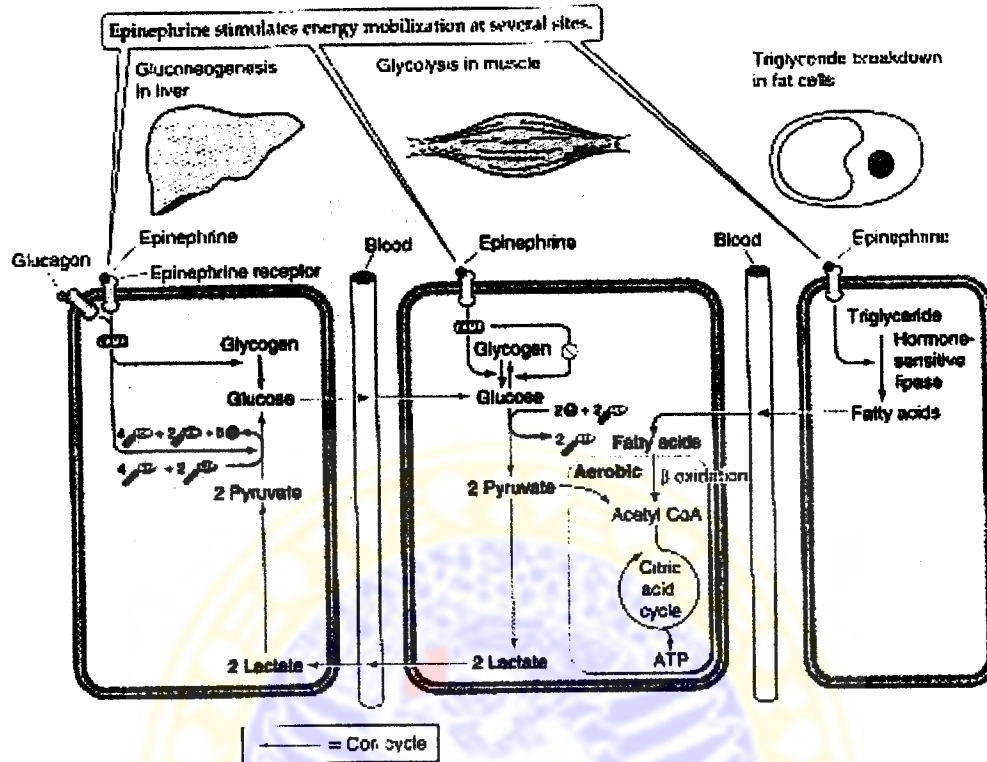 Epinephrine stimulates energy mobilization at several sites.
Gluconeogenesis
in liver
Glycolysis in muscle
Triglyceride breakdown
in fat cells
Glucagon
Epinephrine
Epinephrine receptor
Blood
Epinephrine
Blood
Epinephrine
Glycogen
Glucose
2 Pyruvate
2 Lactate
Glycogen
Glucose
2 Pyruvate
2 Lactate
Fatty acids
Aerobic
β oxidation
Acetyl CoA
Citric
acid
cycle
ATP
Triglyceride
Hormone-
sensitive
lipase
Fatty acids
= Cori cycle